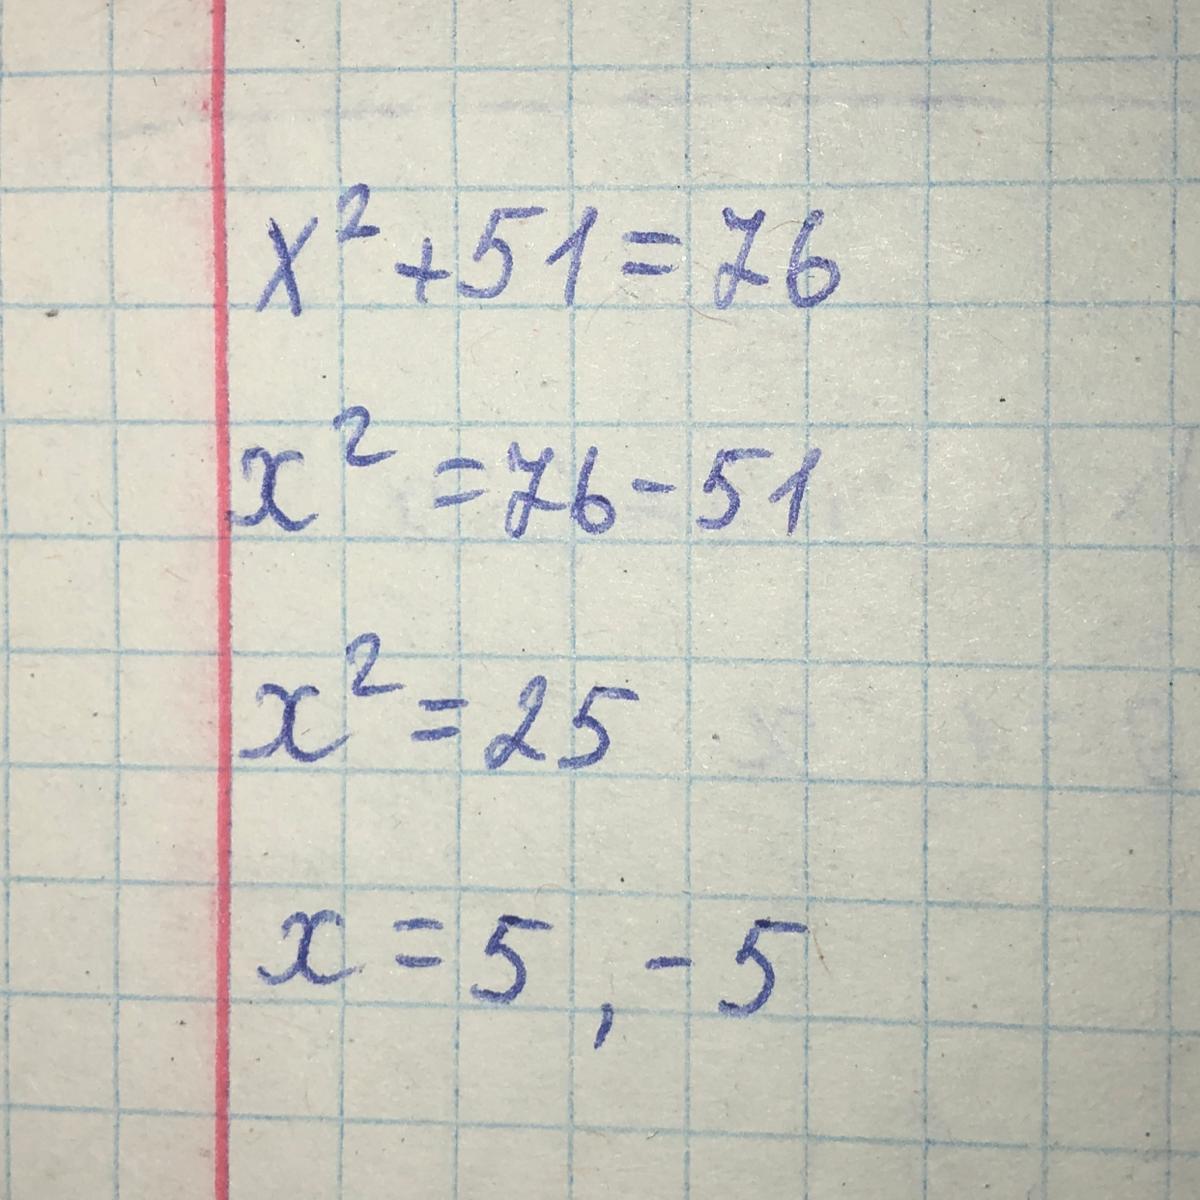 x² + 51 = 76
x² = 76 - 51
x² = 25
x = 5 , - 5